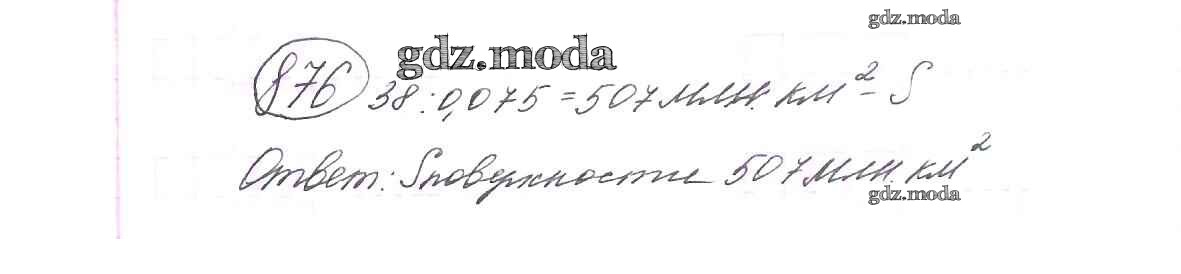 gdz.moda
876 gdz.moda
38 : 0,075 = 507 млн. км² - S
Ответ: Sповерхности 507 млн. км²
gdz.moda